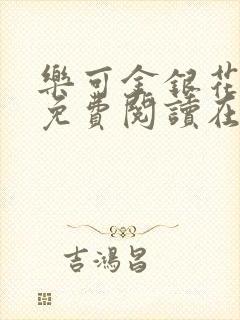 樂可金銀花
免費閱讀在
吉鴻昌